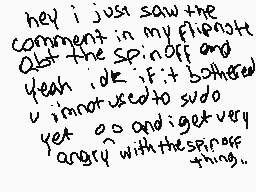 hey i just saw the
comment in my flipnote
abt the spinoff and
yeah idk if it bothered
u i'm not used to sudo
yet oo and i get very
angry with the spinoff
thing..